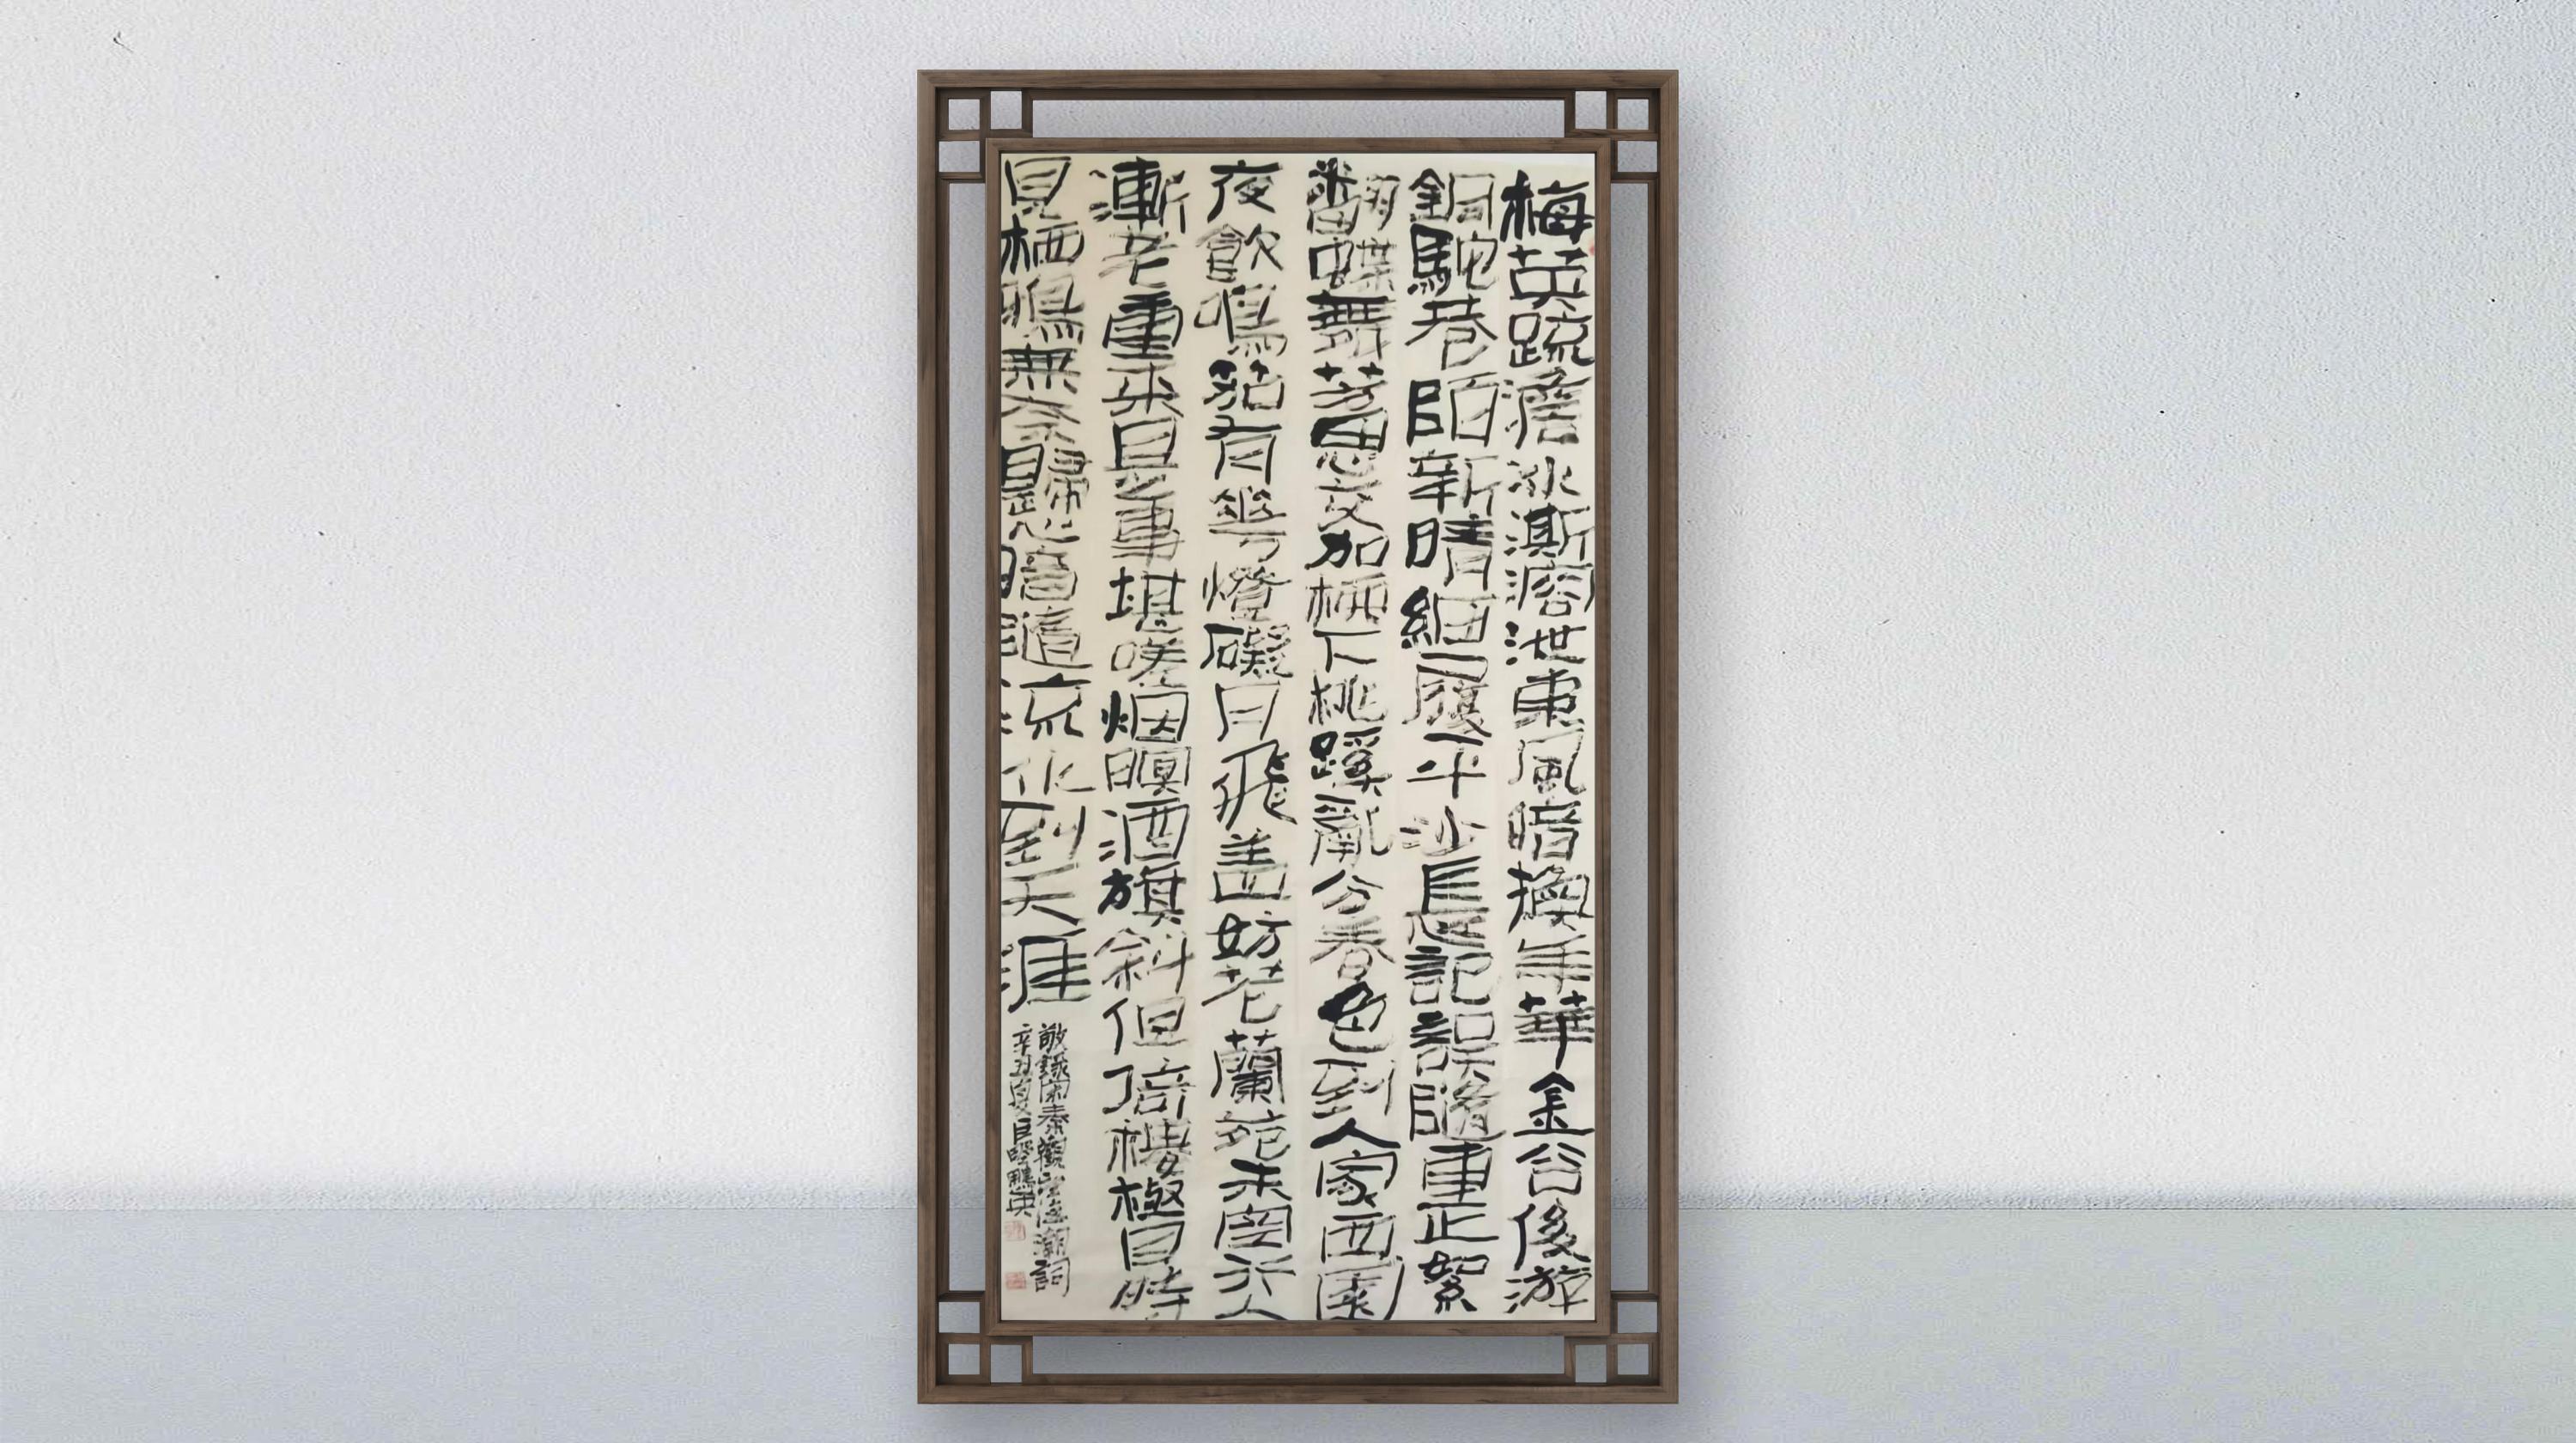 梅英疏澹冰澌溶泄東風暗換年華金谷俊游
銅駝巷陌新晴細履平沙長記誤隨車正絮
翻蝶舞芳思交加柳下桃蹊亂分春色到人家西園
夜飲鳴笳有華燈礙月飛盖妨花蘭苑未空行人
漸老重來是事堪嗟烟暝酒旗斜但倚樓極目時
見栖鴉無奈歸心暗隨流水到天涯
敬錄宋秦觀望海潮詞
辛丑夏鵬英